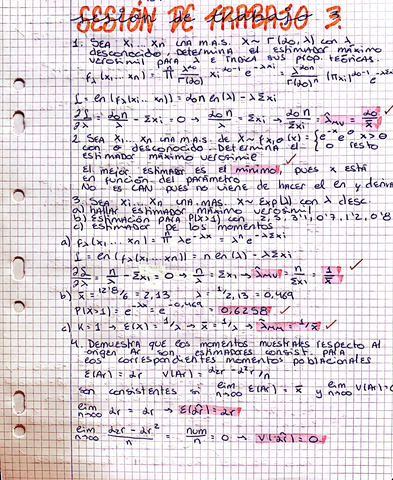 SESIÓN DE TRABAJO 3.
1. SEA Xi... Xn UNA M.A.S. X~ Γ(αo, λ) CON λ
DESCONOCIDO. DETERMINA EL ESTIMADOR MÁXIMO
VEROSIMIL PARA λ E INDICA SUS PROP. TEÓRICAS.
fλ(x1, ... xn) = Π λ^αo / Γ(αo) xi^αo-1 e^-λxi = λ^αon / Γ(αo)^n (Πxi)^αo-1 e^-λΣxi
L = ln (fλ(x1... xn)) = αon ln(λ) - λΣxi
∂L/∂λ = αon/λ - Σxi = 0 → αon/λ = Σxi → αon/Σxi = λ̂MV = αo/x̄
2. SEA Xi... Xn UNA M.A.S. DE X~ fx,θ(x) = {e^θ-x x>θ
CON θ DESCONOCIDO. DETERMINA EL 0 RESTO
ESTIMADOR MÁXIMO VEROSIMIL
EL MEJOR ESTIMADOR ES EL MÍNIMO, PUES X ESTÁ
EN FUNCIÓN DEL PARÁMETRO
NO ES CAN PUES NO VIENE DE HACER EL ln Y DERIVA
3. SEA Xi... Xn UNA M.A.S. X~ Exp(λ) CON λ DESC.
a) HALLAR ESTIMADOR MÁXIMO VEROSIMIL
b) ESTIMACIÓN PARA P(X>1) CON 2, 5, 3'1, 0'7, 1'2, 0'8
c) ESTIMADOR DE LOS MOMENTOS
a) fλ(x1, ... xn) = Π λe^-λx = λ^n e^-λΣxi
L = ln (fλ(x1... xn)) = n ln(λ) - λΣxi
∂L/∂λ = n/λ - Σxi = 0 → n/λ = Σxi → λ̂MV = n/Σxi = 1/x̄
b) x̄ = 12'8/6 = 2,13 λ = 1/2,13 = 0,469
P(X>1) = e^-λx = e^-0,469 = 0,6258
c) K = 1 → E(X) = 1/λ → x̄ = 1/λ → λ̂MM = 1/x̄
4. DEMUESTRA QUE LOS MOMENTOS MUESTRALES RESPECTO AL
ORIGEN Ar SON ESTIMADORES CONSIST. PARA
LOS CORRESPONDIENTES MOMENTOS POBLACIONALES
E(Ar) = αr V(Ar) = α2r - αr²/n
SON CONSISTENTES SI lim n→∞ E(Ar) = x̄ y lim n→∞ V(Ar) = 0
lim n→∞ αr = αr → E(α̂r) = αr
lim n→∞ α2r - αr² / n = num/n = 0 → V(α̂r) = 0